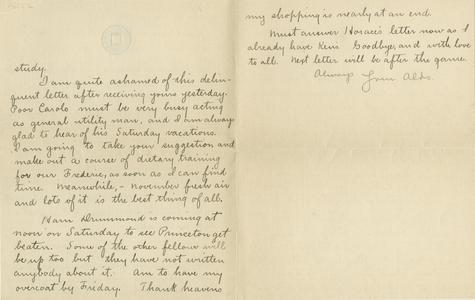 study.
I am quite ashamed of this delin-
quent letter after receiving yours yesterday.
Poor Carolo must be very busy acting
as general utility man, and I am always
glad to hear of his Saturday vacations.
I am going to take your suggestion and
make out a course of dietary training
for our Frederic, as soon as I can find
time. Meanwhile, - November fresh air
and lots of it is the best thing of all.
Ham Drummond is coming at
noon on Saturday to see Princeton get
beaten. Some of the other fellows will
be up too but they have not written
anybody about it. Am to have my
overcoat by Friday. Thank heavens
my shopping is nearly at an end.
Must answer Horace's letter now as I
already have Ken's. Goodbye, and with love
to all. Next letter will be after the game.
Always
from Aldo.